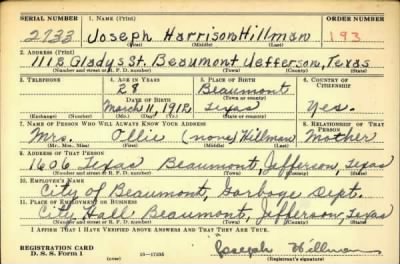 SERIAL NUMBER 1. NAME (Print) ORDER NUMBER
2733 Joseph Harrison Hillman 193
(First) (Middle) (Last)
2. ADDRESS (Print)
1112 Gladys St. Beaumont Jefferson, Texas
(Number and street or R. F. D. number) (Town) (County) (State)
3. TELEPHONE 4. AGE IN YEARS 5. PLACE OF BIRTH 6. COUNTRY OF CITIZENSHIP
28 Beaumont
DATE OF BIRTH (Town or county)
March 11, 1912 Texas Yes.
(Exchange) (Number) (Mo.) (Day) (Yr.) (State or country)
7. NAME OF PERSON WHO WILL ALWAYS KNOW YOUR ADDRESS 8. RELATIONSHIP OF THAT PERSON
Mrs. Ollie (none) Hillman Mother
(Mr., Mrs., Miss) (First) (Middle) (Last)
9. ADDRESS OF THAT PERSON
1606 Texas Beaumont, Jefferson, Texas
(Number and street or R. F. D. number) (Town) (County) (State)
10. EMPLOYER'S NAME
City of Beaumont, Garbage Dept.
11. PLACE OF EMPLOYMENT OR BUSINESS
City Hall Beaumont, Jefferson, Texas
(Number and street or R. F. D. number) (Town) (County) (State)
I AFFIRM THAT I HAVE VERIFIED ABOVE ANSWERS AND THAT THEY ARE TRUE.
REGISTRATION CARD
D. S. S. Form 1 (over) Joseph Hillman
(Registrant's signature)